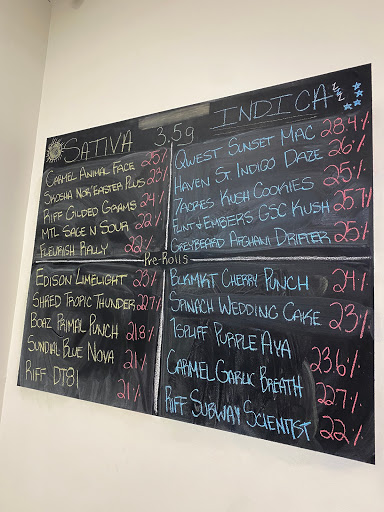 SATIVA 3.5g INDICA
CARMEL ANIMAL FACE 25%
SKOSHA NOR'EASTER PLUS 23%
RIFF GILDED GRAMS 24%
MTL SAGE N SOUR 22%
FLEURISH RALLY 22%
QWEST SUNSET MAC 28.4%
HAVEN ST INDIGO DAZE 26%
7ACRES KUSH COOKIES 25%
FLINT N EMBERS GSC KUSH 25.7%
GREYBEARD AFGHANI DRIFTER 25%
Pre-Rolls
EDISON LIMELIGHT 23%
SHRED TROPIC THUNDER 22.7%
BOAZ PRIMAL PUNCH 21.8%
SUNDIAL BLUE NOVA 21%
RIFF DT81 21%
BLKMKT CHERRY PUNCH 24%
SPINACH WEDDING CAKE 23%
1SPLIFF PURPLE AYA 23.6%
CARMEL GARLIC BREATH 22.7%
RIFF SUBWAY SCIENTIST 22%